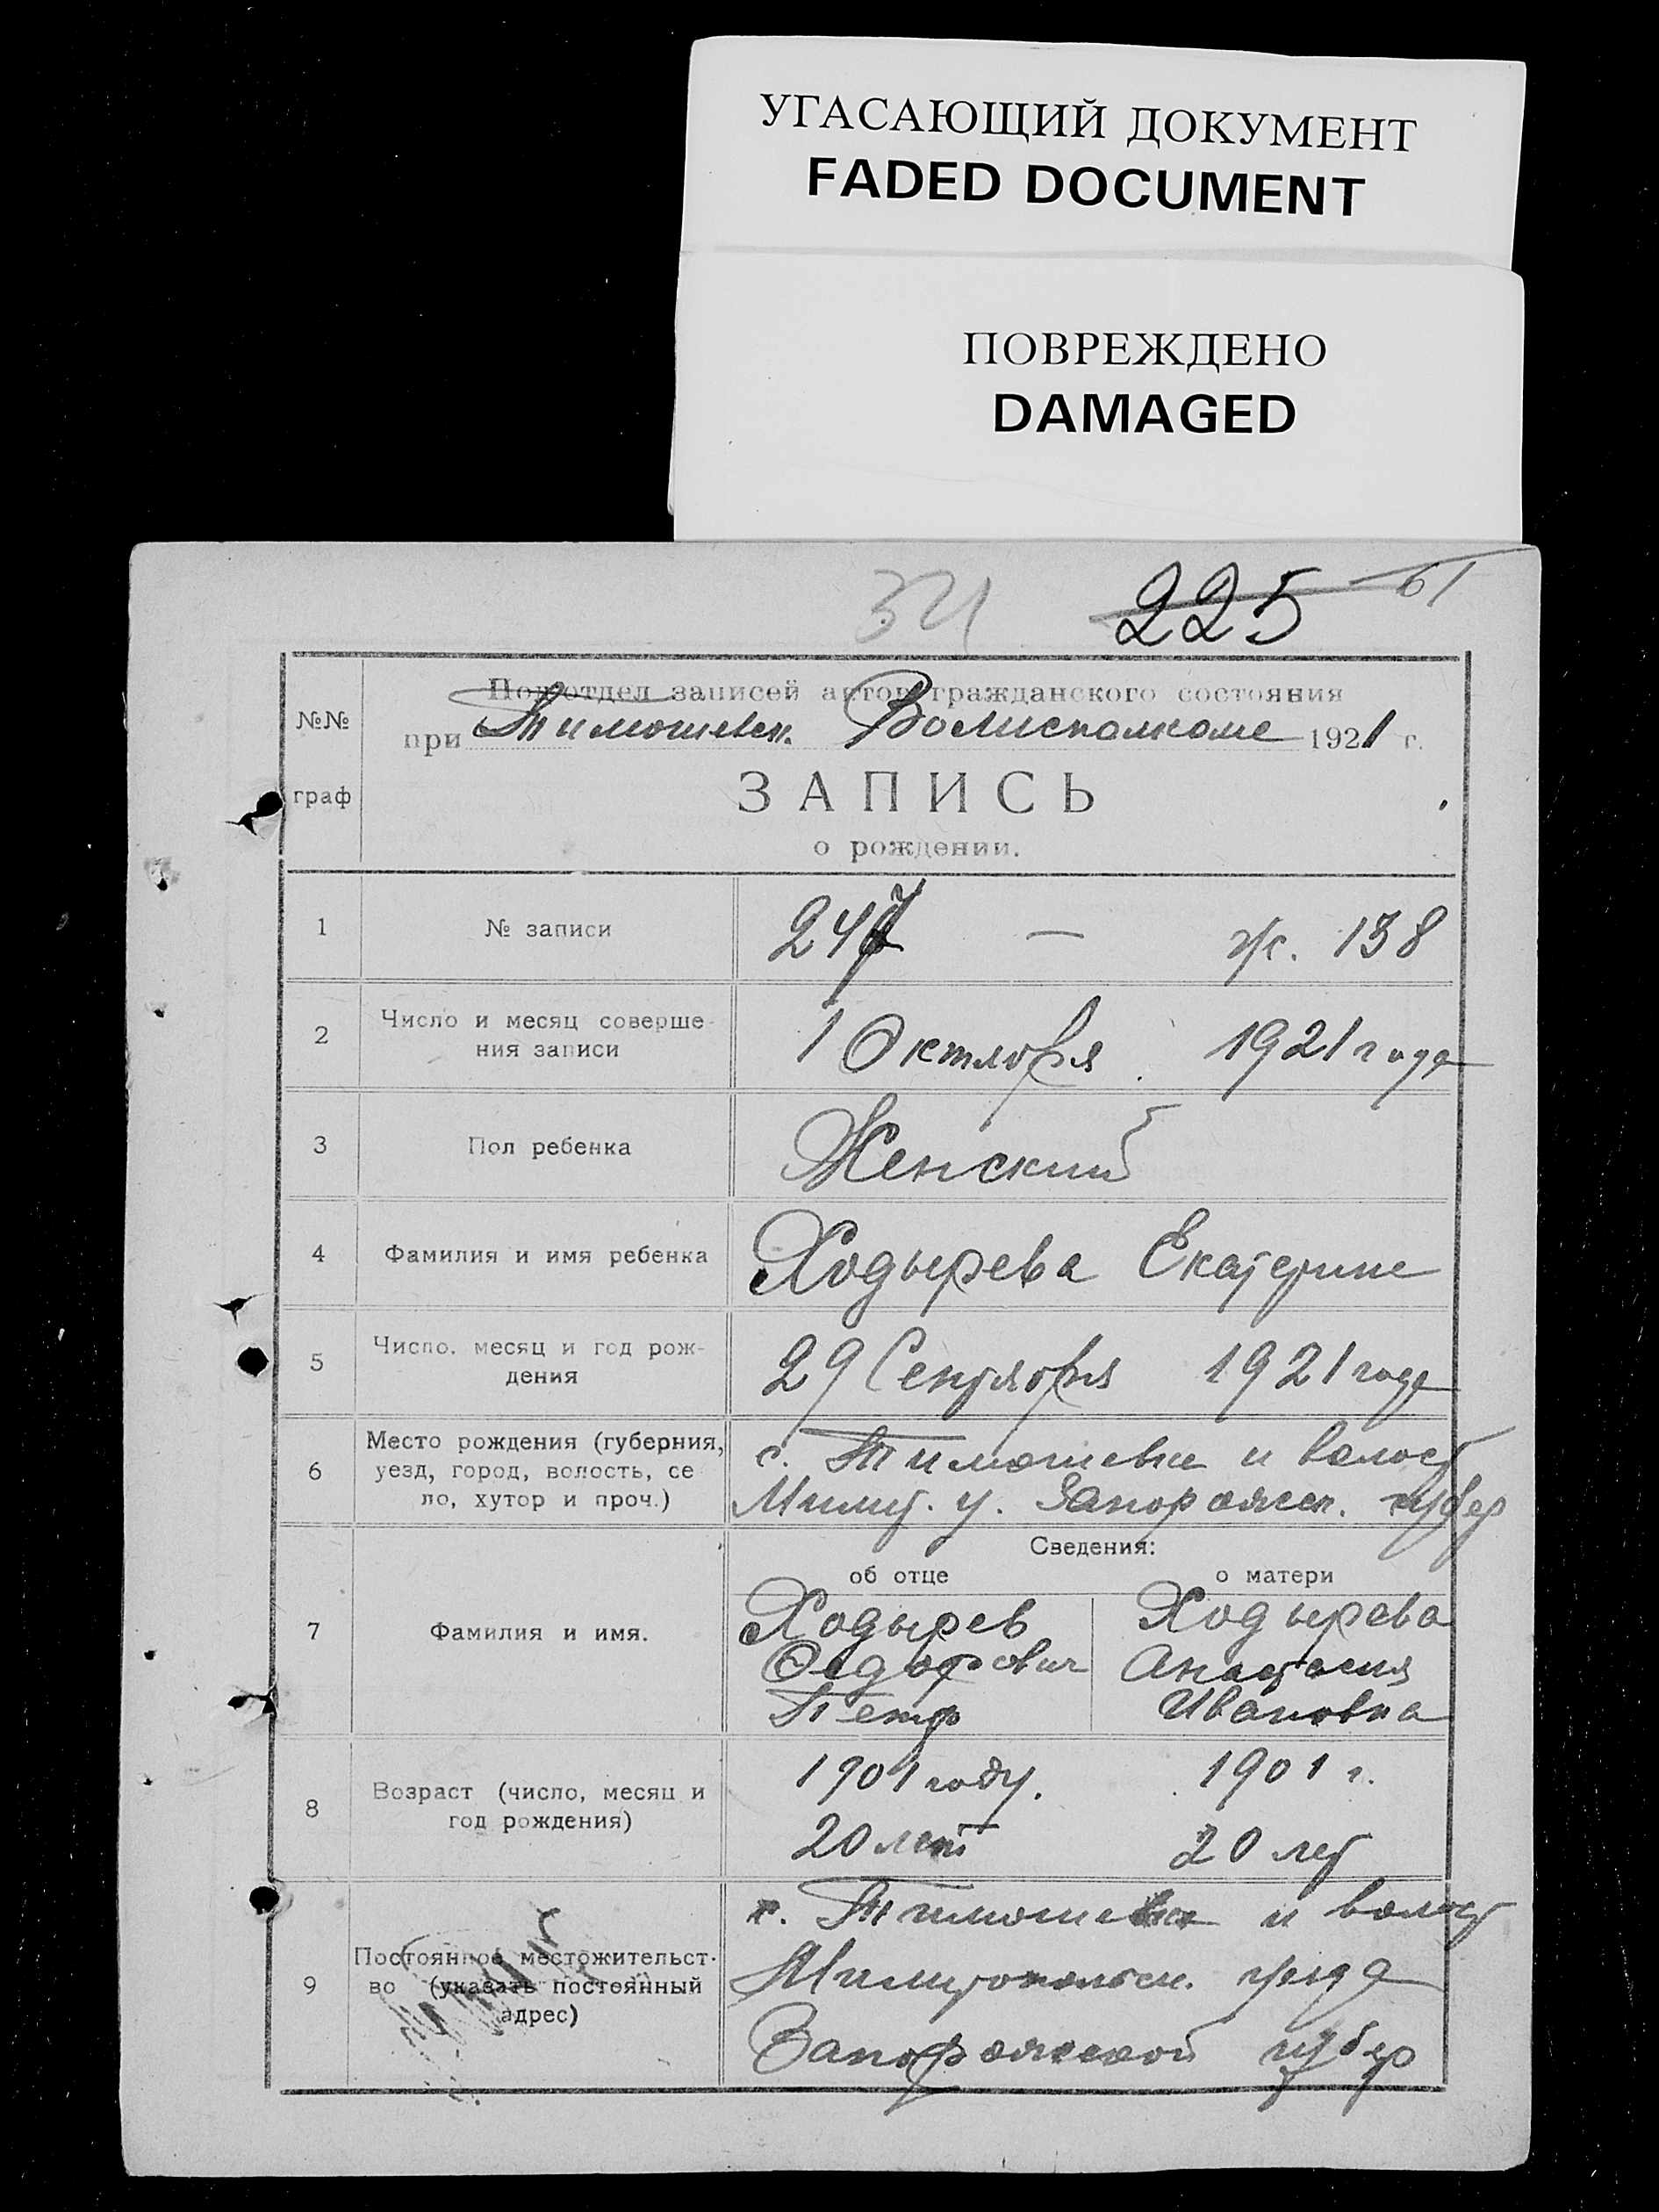 УГАСАЮЩИЙ ДОКУМЕНТ
FADED DOCUMENT
ПОВРЕЖДЕНО
DAMAGED
225 61
№№
граф
Подотдел записей актов гражданского состояния
при Тимошевск. Волисполкоме 1921 г.
ЗАПИСЬ
о рождении.
1 № записи 247 — ж. 138
2 Число и месяц соверше-
ния записи 1 Октября 1921 года
3 Пол ребенка Женский
4 Фамилия и имя ребенка Ходырева Екатерина
5 Число. месяц и год рож-
дения 29 Сентября 1921 года
6 Место рождения (губерния,
уезд, город, волость, се
ло, хутор и проч.)
с. Тимошевка и волост
Милит. у. Запорожск. губер
Сведения:
об отце о матери
7 Фамилия и имя.
Ходырев Ходырева
Федорович Анастасия
Петр Ивановна
8 Возраст (число, месяц и
год рождения)
1901 году. 1901 г.
20 лет 20 лет
9 Постоянное местожительст-
во (указать постоянный
адрес)
с. Тимошевка и волост
Милитопольск. уезда
Запорожской губер